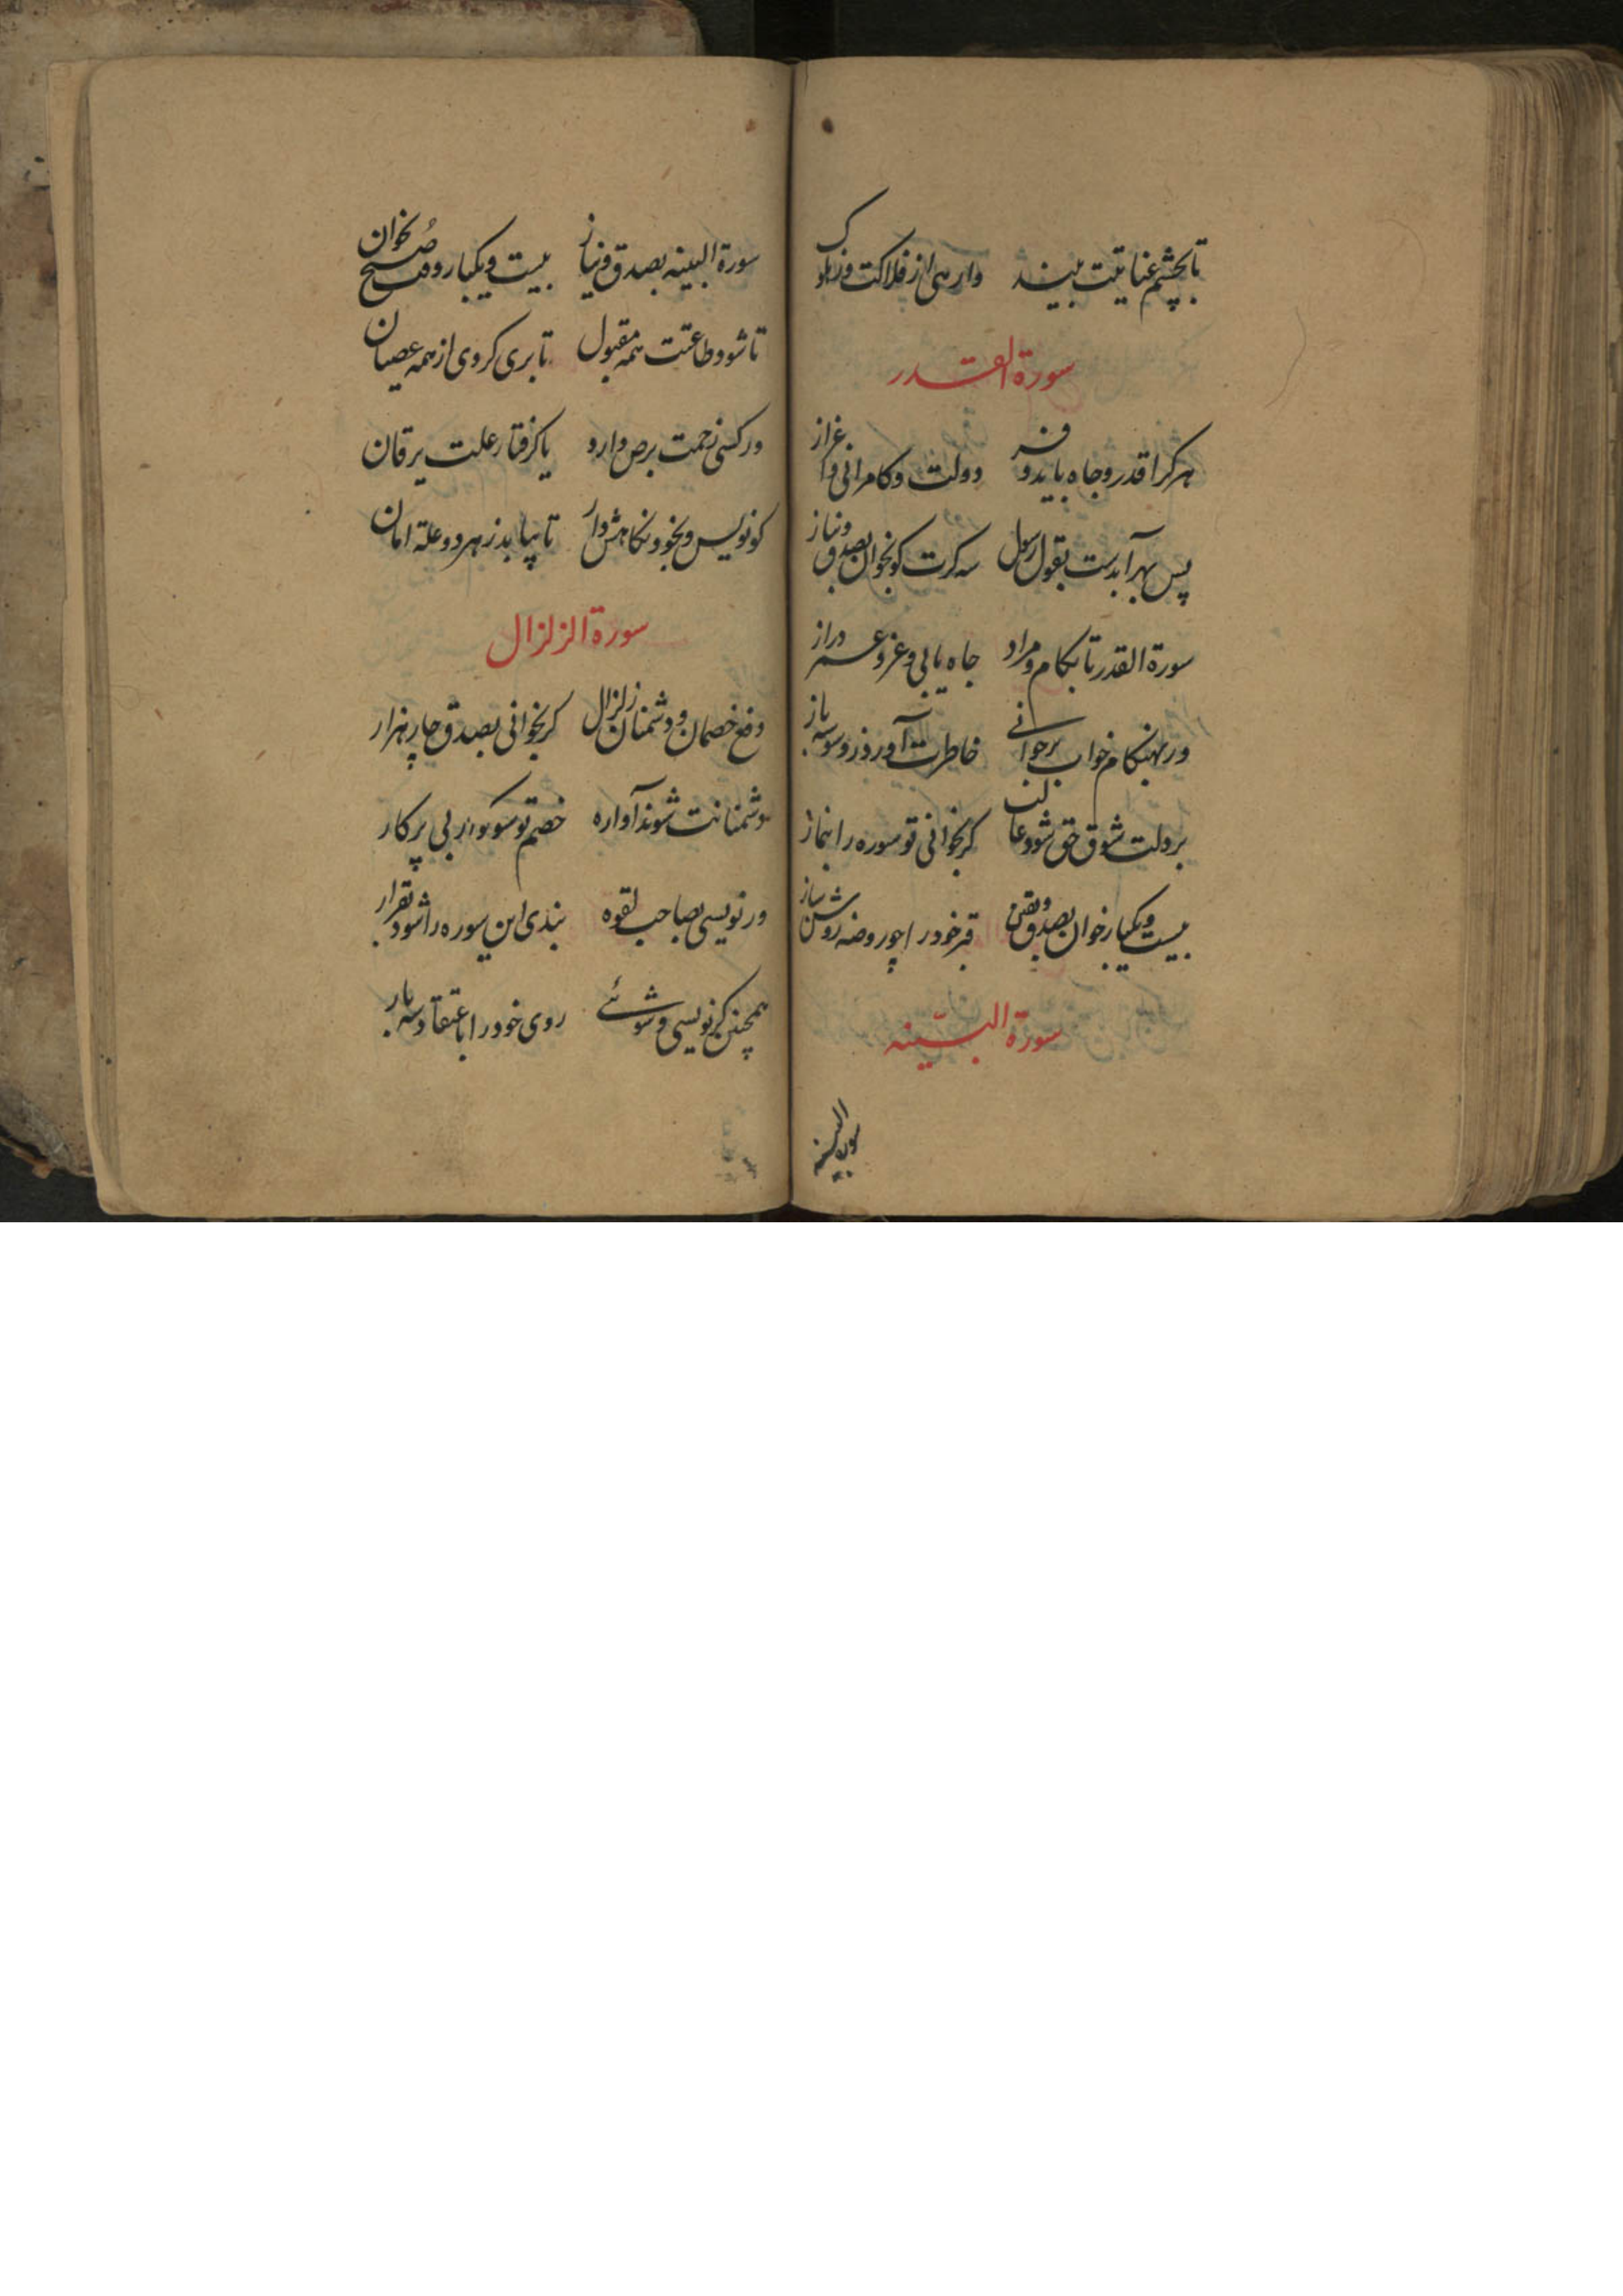 تا بچشم عنایتت بیند وارهی از فلاکت وز هلاک
سورة القدر
هر کرا قدر و جاه باید و فر دولت و کامرانی و اعزاز
پس بهر آبدست بقول رسول سه کرت کو بخوان بصدق و نیاز
سورة القدر تا بکام و مراد جاه یابی و عز و عمر دراز
ور بهنکام خواب برخوانی خاطرت آورد ز وسوسه باز
بر دلت شوق حق شود غالب کر بخوانی تو سوره را بنماز
بیست و یکبار خوان بصدق و یقین قبر خود را چو روضه روشن ساز
سورة البینه
سورة البینه
سورة البینه بصدق و نیاز بیست و یکبار وقت صبح بخوان
تا شود طاعتت همه مقبول تا بری کردی از همه عصیان
ور کسی زحمت برص دارد یا کرفتار علت یرقان
کو نویس و بخود نکاهش دار تا بیابد ز هر دو علة امان
سورة الزلزال
دفع خصمان و دشمنان زلزال کر بخوانی بصدق چار هزار
دشمنانت شوند آواره خصم تو بی پرکار
ور نویسی بصاحب لقوه بندی این سوره را شود بقرار
همچنین کر نویسی و شوئے روی خود را باعتقاد سه بار